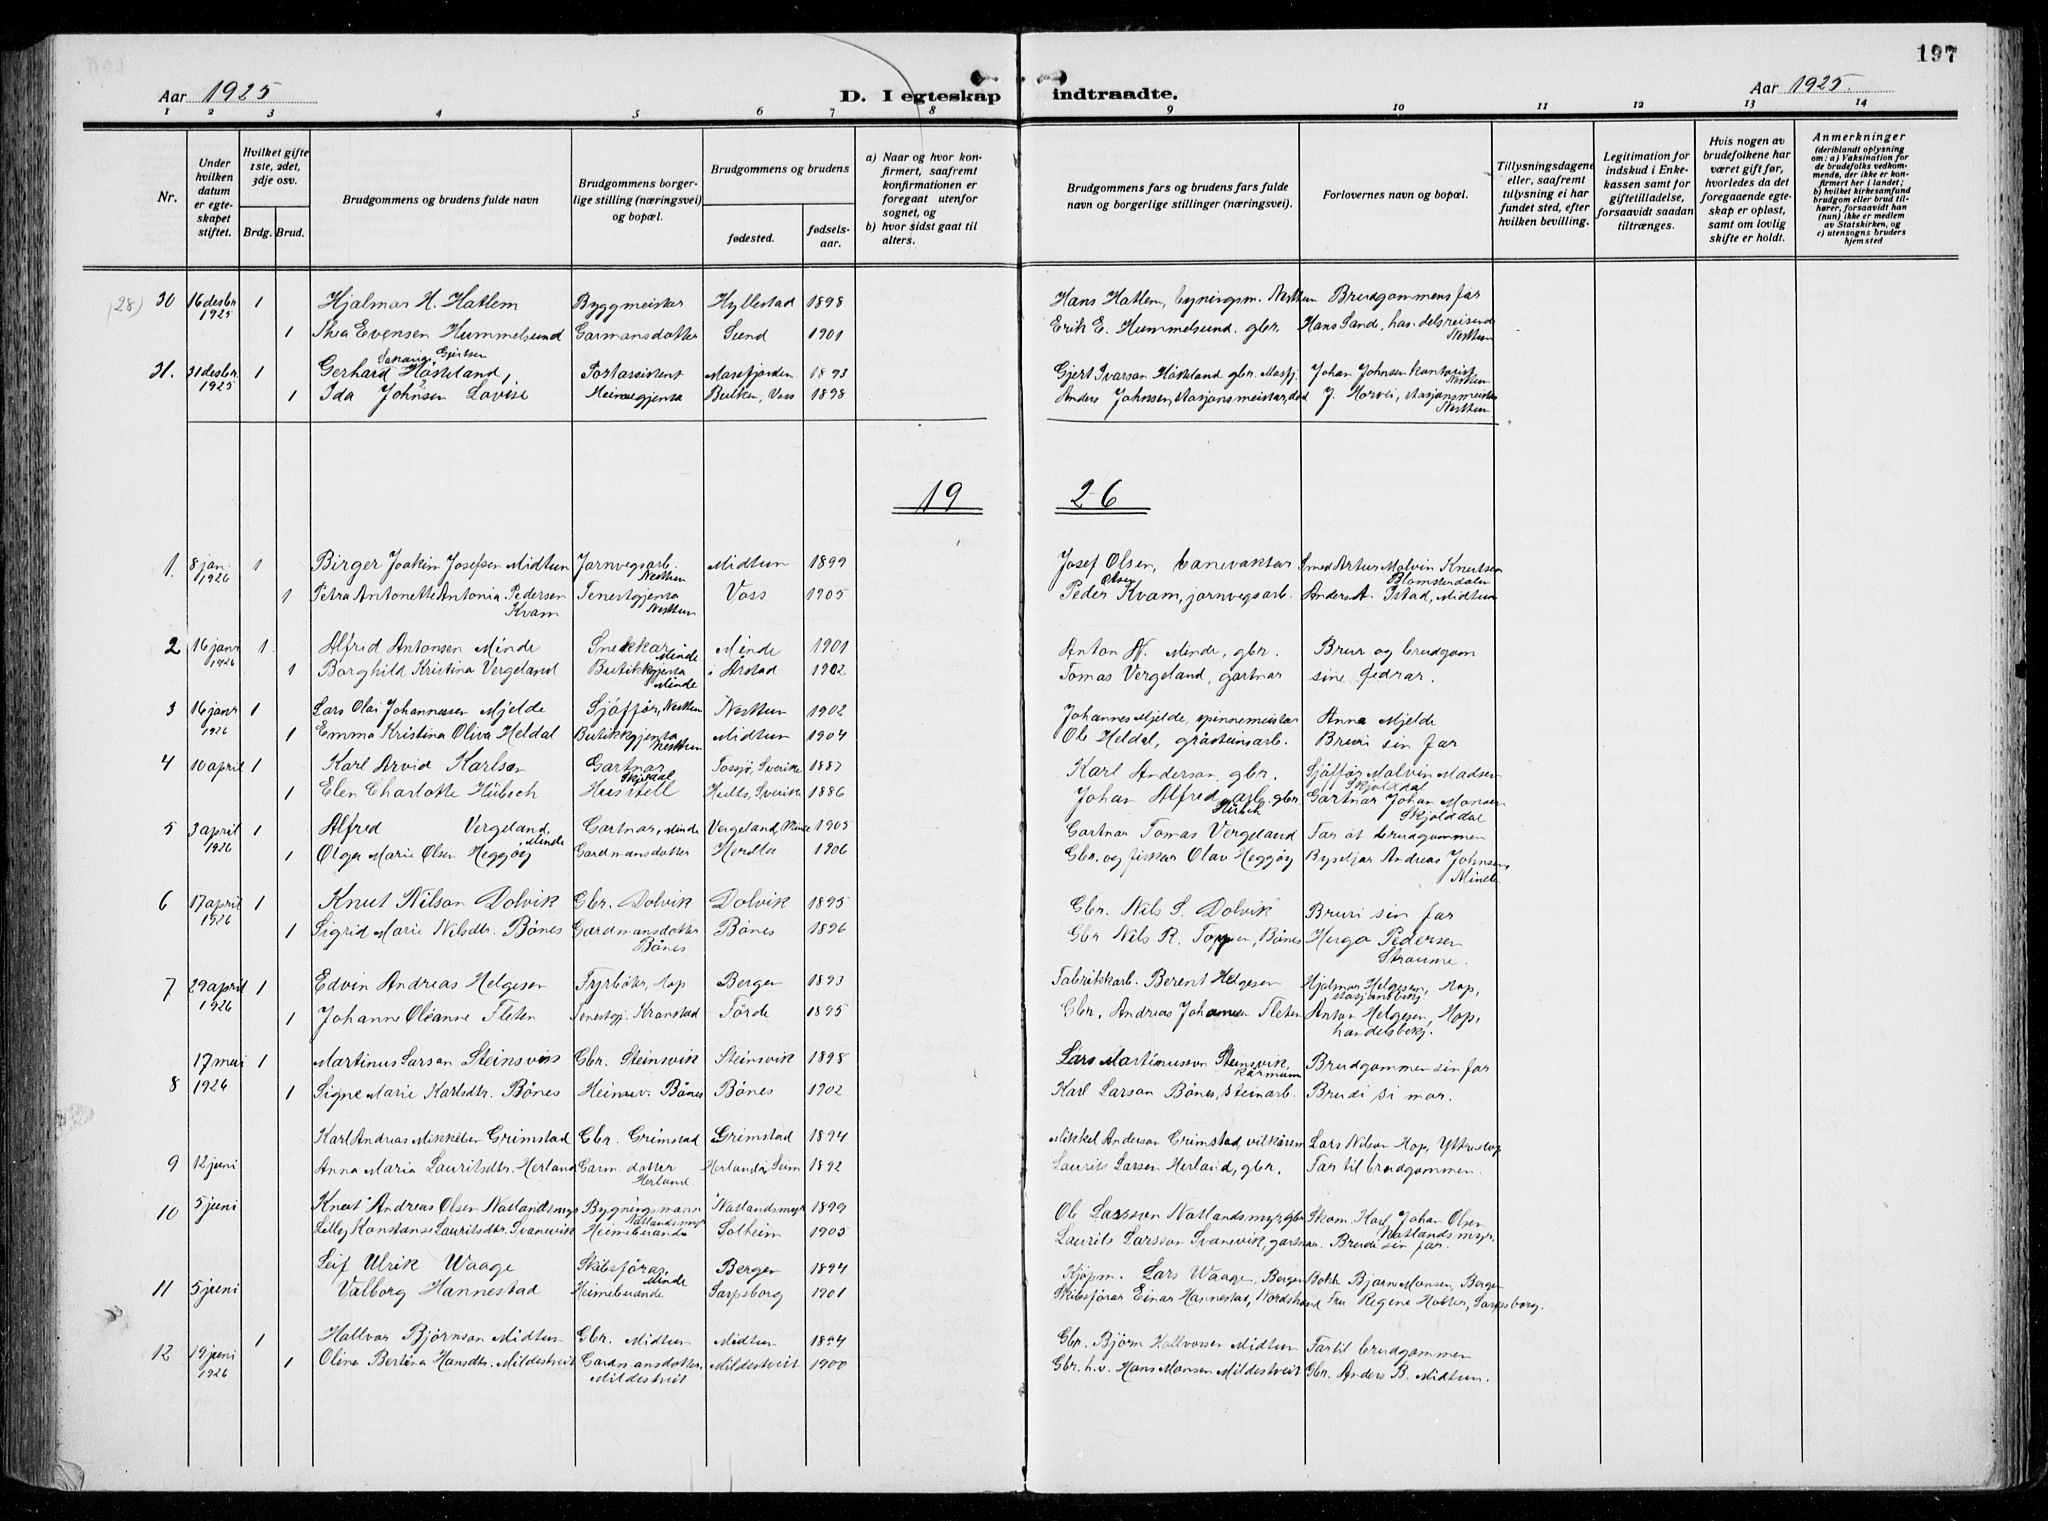 197
Aar 1925
D. I egteskap indtraadte.
Aar 1925.
1 2 3 4 5 6 7 8 9 10 11 12 13 14
Nr.
Under hvilken datum er egteskapet stiftet.
Hvilket gifte 1ste, 2det, 3dje osv.
Brdg. Brud.
Brudgommens og brudens fulde navn
Brudgommens borgerlige stilling (næringsvei) og bopæl.
Brudgommens og brudens
fødested.
fødselsaar.
a) Naar og hvor konfirmert, saafremt konfirmationen er foregaat utenfor sognet, og
b) hvor sidst gaat til alters.
Brudgommens fars og brudens fars fulde navn og borgerlige stillinger (næringsvei).
Forlovernes navn og bopæl.
Tillysningsdagene eller, saafremt tillysning ei har fundet sted, efter hvilken bevilling.
Legitimation for indskud i Enkekassen samt for giftetilladelse, forsaavidt saadan tiltrænges.
Hvis nogen av brudefolkene har været gift før, hvorledes da det foregaaende egteskap er opløst, samt om lovlig skifte er holdt.
Anmerkninger (deriblandt oplysning om: a) Vaksination for de brudefolks vedkommende, der ikke er konfirmert her i landet; b) hvilket kirkesamfund brudgom eller brud tilhører, forsaavidt han (hun) ikke er medlem av Statskirken, og c) utensogns bruders hjemsted
(28) 30 16 desbr. 1925 1 Hjalmar H. Hatlem Byggmeister Hyllestad 1898 Hans Hatlem, bygningsm. Nesttun Brudgommens far
1 Thea Evensen Hummelsund Garmansdotter Sund 1901 Erik E. Hummelsund. gbr. Hans Sande, handelsreisende Nesttun
31. 31 desbr. 1925 1 Gerhard Gjertsen Høsteland, Postassistent Masfjorden 1893 Gjert Ivarson Høsteland gbr. Masfj. Johan Johnsen kontorist Nesttun
1 Ida Johnsen Lovise Heimegjenta Bulken, Voss 1898 Anders Johnsen, stasjonsmeistar, død J. Horvei, stasjonsmeister Nesttun
19 26
1. 8 jan. 1926 1 Birger Joakim Josefsen Midtun Jarnvegsarb. Nesttun Midtun 1899 Josef Olsen, banevaktar Smed Artur Malvin Knutsen Blomsterdalen
1 Petra Antonette Antonia Pedersen Kvam Tenestgjenta Nesttun Voss 1905 Peder Olsen Kvam, jarnvegsarb. Anders A. Istad, Midtun
2 16 janr 1926 1. Alfred Antonsen Minde Snekkar Minde Minde 1901 Anton N. Minde, gbr. Brur og brudgom
1 Borghild Kristina Vergeland Butikkgjenta Minde i Årstad 1902 Tomas Vergeland, gartnar sine fedrar.
3 16 janr 1926 1 Lars Olai Johannessen Mjelde Sjåffør, Nesttun Nesttun 1902 Johannes Mjelde, spinnemeistar Anna Mjelde
1 Emma Kristina Oliva Heldal Butikkgjenta Nesttun Midtun 1904 Ole Heldal, gråsteinsarb. Bruri sin far
4 10 april 1 Karl Arvid Karlsen Gartnar Skjoldal Sverike 1887 Karl Anderson, gbr. Sjåffør Malvin Madsen Skjolddal
1 Elen Charlotte Hübech Husstell Hults, Sverike 1886 Johan Alfred gbr. Gartnar Johan Monsen Skjolddal
5 3 april 1926 1 Alfred Vergeland, Minde Gartnar, Minde Vergeland, Minde 1905 Gartnar Tomas Vergeland Far åt brudgommen
1 Olga Marie Olsen Heggøy Gardmansdotter Herdla 1906 Gbr. og fiskar Olav Heggøy Andreas Johnsen, Minde
6 17 april 1926 1 Knut Nilson Dolvik Gbr. Dolvik Dolvik 1895 Gbr. Nils S. Dolvik Bruri sin far
1 Sigrid Marie Nilsdtr. Bønes Gardmansdotter Bønes Bønes 1896 Gbr Nils R. Toppe, Bønes Hugo Pedersen Straume.
7 29 april 1926 1 Edvin Andreas Helgesen Fyrbøter, Hop Bergen 1893 Fabrikkarb. Berent Helgesen Hjalmar Helgesen, Hop, stasjonsbetj.
1 Johanne Oleanne Fleten Tenestgj. Kronstad Førde 1895 Gbr. Andreas Johansen Fleten Anton Helgesen, Hop, handelsbetj.
8 17 mai 1926 1 Martinus Larson Steinsvik Gbr. Steinsvik Steinsvik 1898 Lars Martinusson Steinsvik, Brudgommen sin far
1 Signe Marie Karlsdtr. Bønes Heimev. Bønes Bønes 1902 Karl Larson Bønes, steinarb. Brudi si mor.
9 12 juni Karl Andreas Mikkelsen Grimstad Gbr. Grimstad Grimstad 1894 Mikkel Anderson Grimstad, vilkårsm Lars Nilson Hop, Ytrestop
Anna Maria Lauritsdtr. Herland Garm. dotter Herland Herland, Seim 1892 Laurits Larsen Herland, gbr. Far til brudgommen.
10 5 juni Knut Andreas Olsen Natlandsmyr Bygningsmann Natlandsmyr Natlandsmyr 1899 Ole Larsson Natlandsmyr gbr. Skom. Karl Johan Olsen Natlandsmyr.
Lilly Konstanse Lauritsdtr. Svanevik Heimeverande Solheim 1905 Laurits Larsson Svanevik, gartnar. Brudi sin far.
11 5 juni Leif Ulrik Waage Skibsførar. Minde Bergen 1894 Kjøpm. Lars Waage, Bergen Bokh. Bjarne Monsen, Bergen
Valborg Hannestad Heimeverande Sarpsborg 1901 Skibsførar Einar Hannestad, Nordstrand Fru Regine Holter, Sarpsborg.
12 19 juni 1926 1 Hallvor Bjørnson Midtun Gbr. Midtun Midtun 1894 Gbr. Bjørn Hallvorsen Midtun Far til brudgommen
1 Olina Bertina Hansdtr. Mildestveit Gardmansdotter. Mildestveit Mildestveit 1900 Gbr. h.v. Hans Monsen Mildestveit Gbr. Anders B. Midtun.